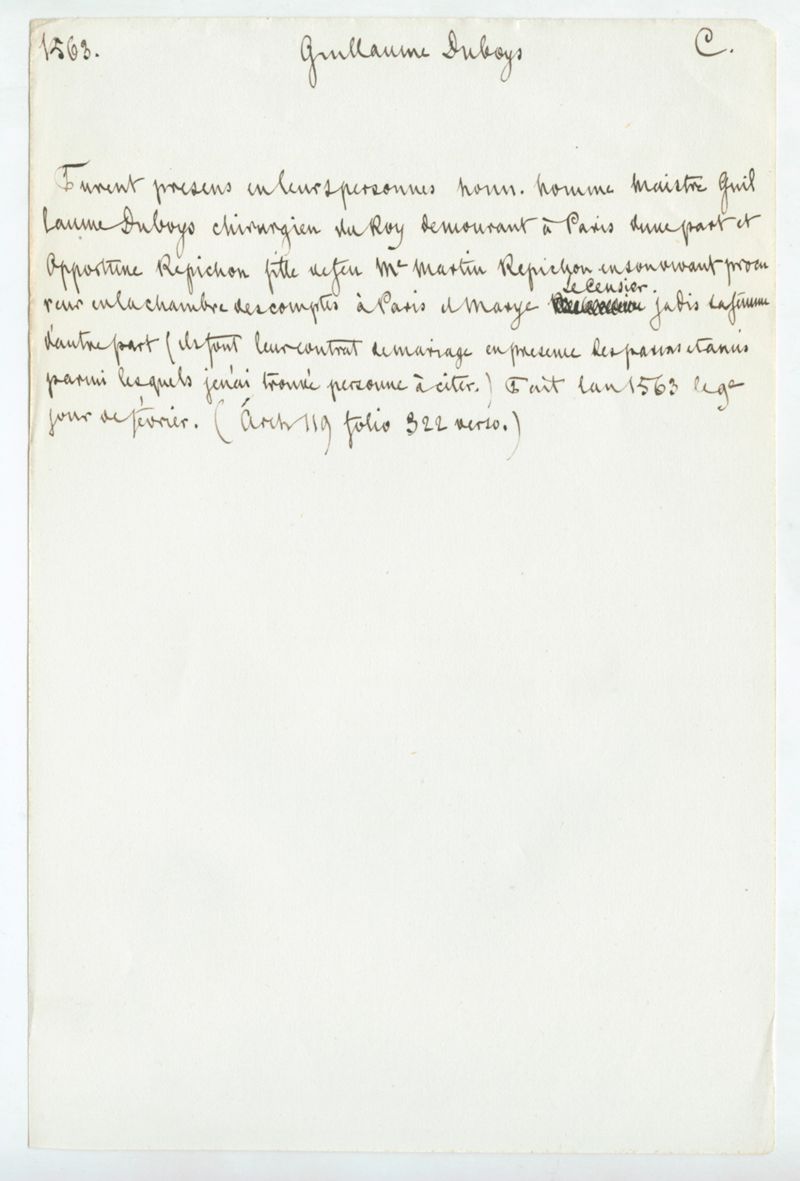 1563. Guillaume Duboys C.
Furent presens en leurs personnes honn. homme Maistre Guil
laume Duboys chirurgien du Roy demourant à Paris dune part et
Opportune Repichon fille de feu Me Martin Repichon en son vivant procu
reur en la chambre des comptes à Paris et Marye Le Censier. jadis sa femme
d'autre part (ils font leur contrat de mariage en presence des parens et amis
parmi lesquels je n'ai trouvé personne à citer.) Fait lan 1563 le 9e
jour de février. (Arch 119 folio 322 verso.)